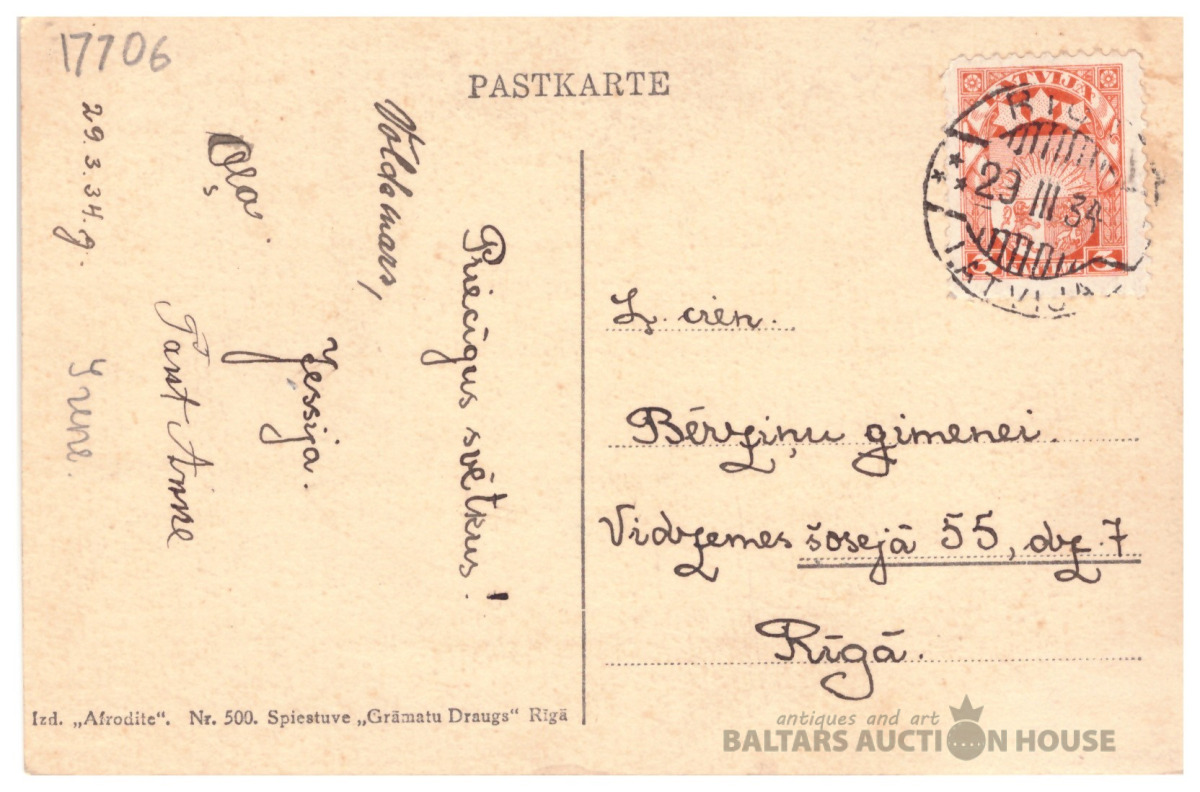 17706
PASTKARTE
LATVIJA
RIGA
29 III 34
LATVIJA
3 3
Priecīgus svētkus!
Voldemars,
Jessija.
Tast Anne
29.3.34.g.
Irene.
Ļ. cien.
Bērziņu ģimenei.
Vidzemes šosejā 55, dz. 7
Rīgā.
Izd. „Afrodite“. Nr. 500. Spiestuve „Grāmatu Draugs“ Rīgā
antiques and art
BALTARS AUCTION HOUSE